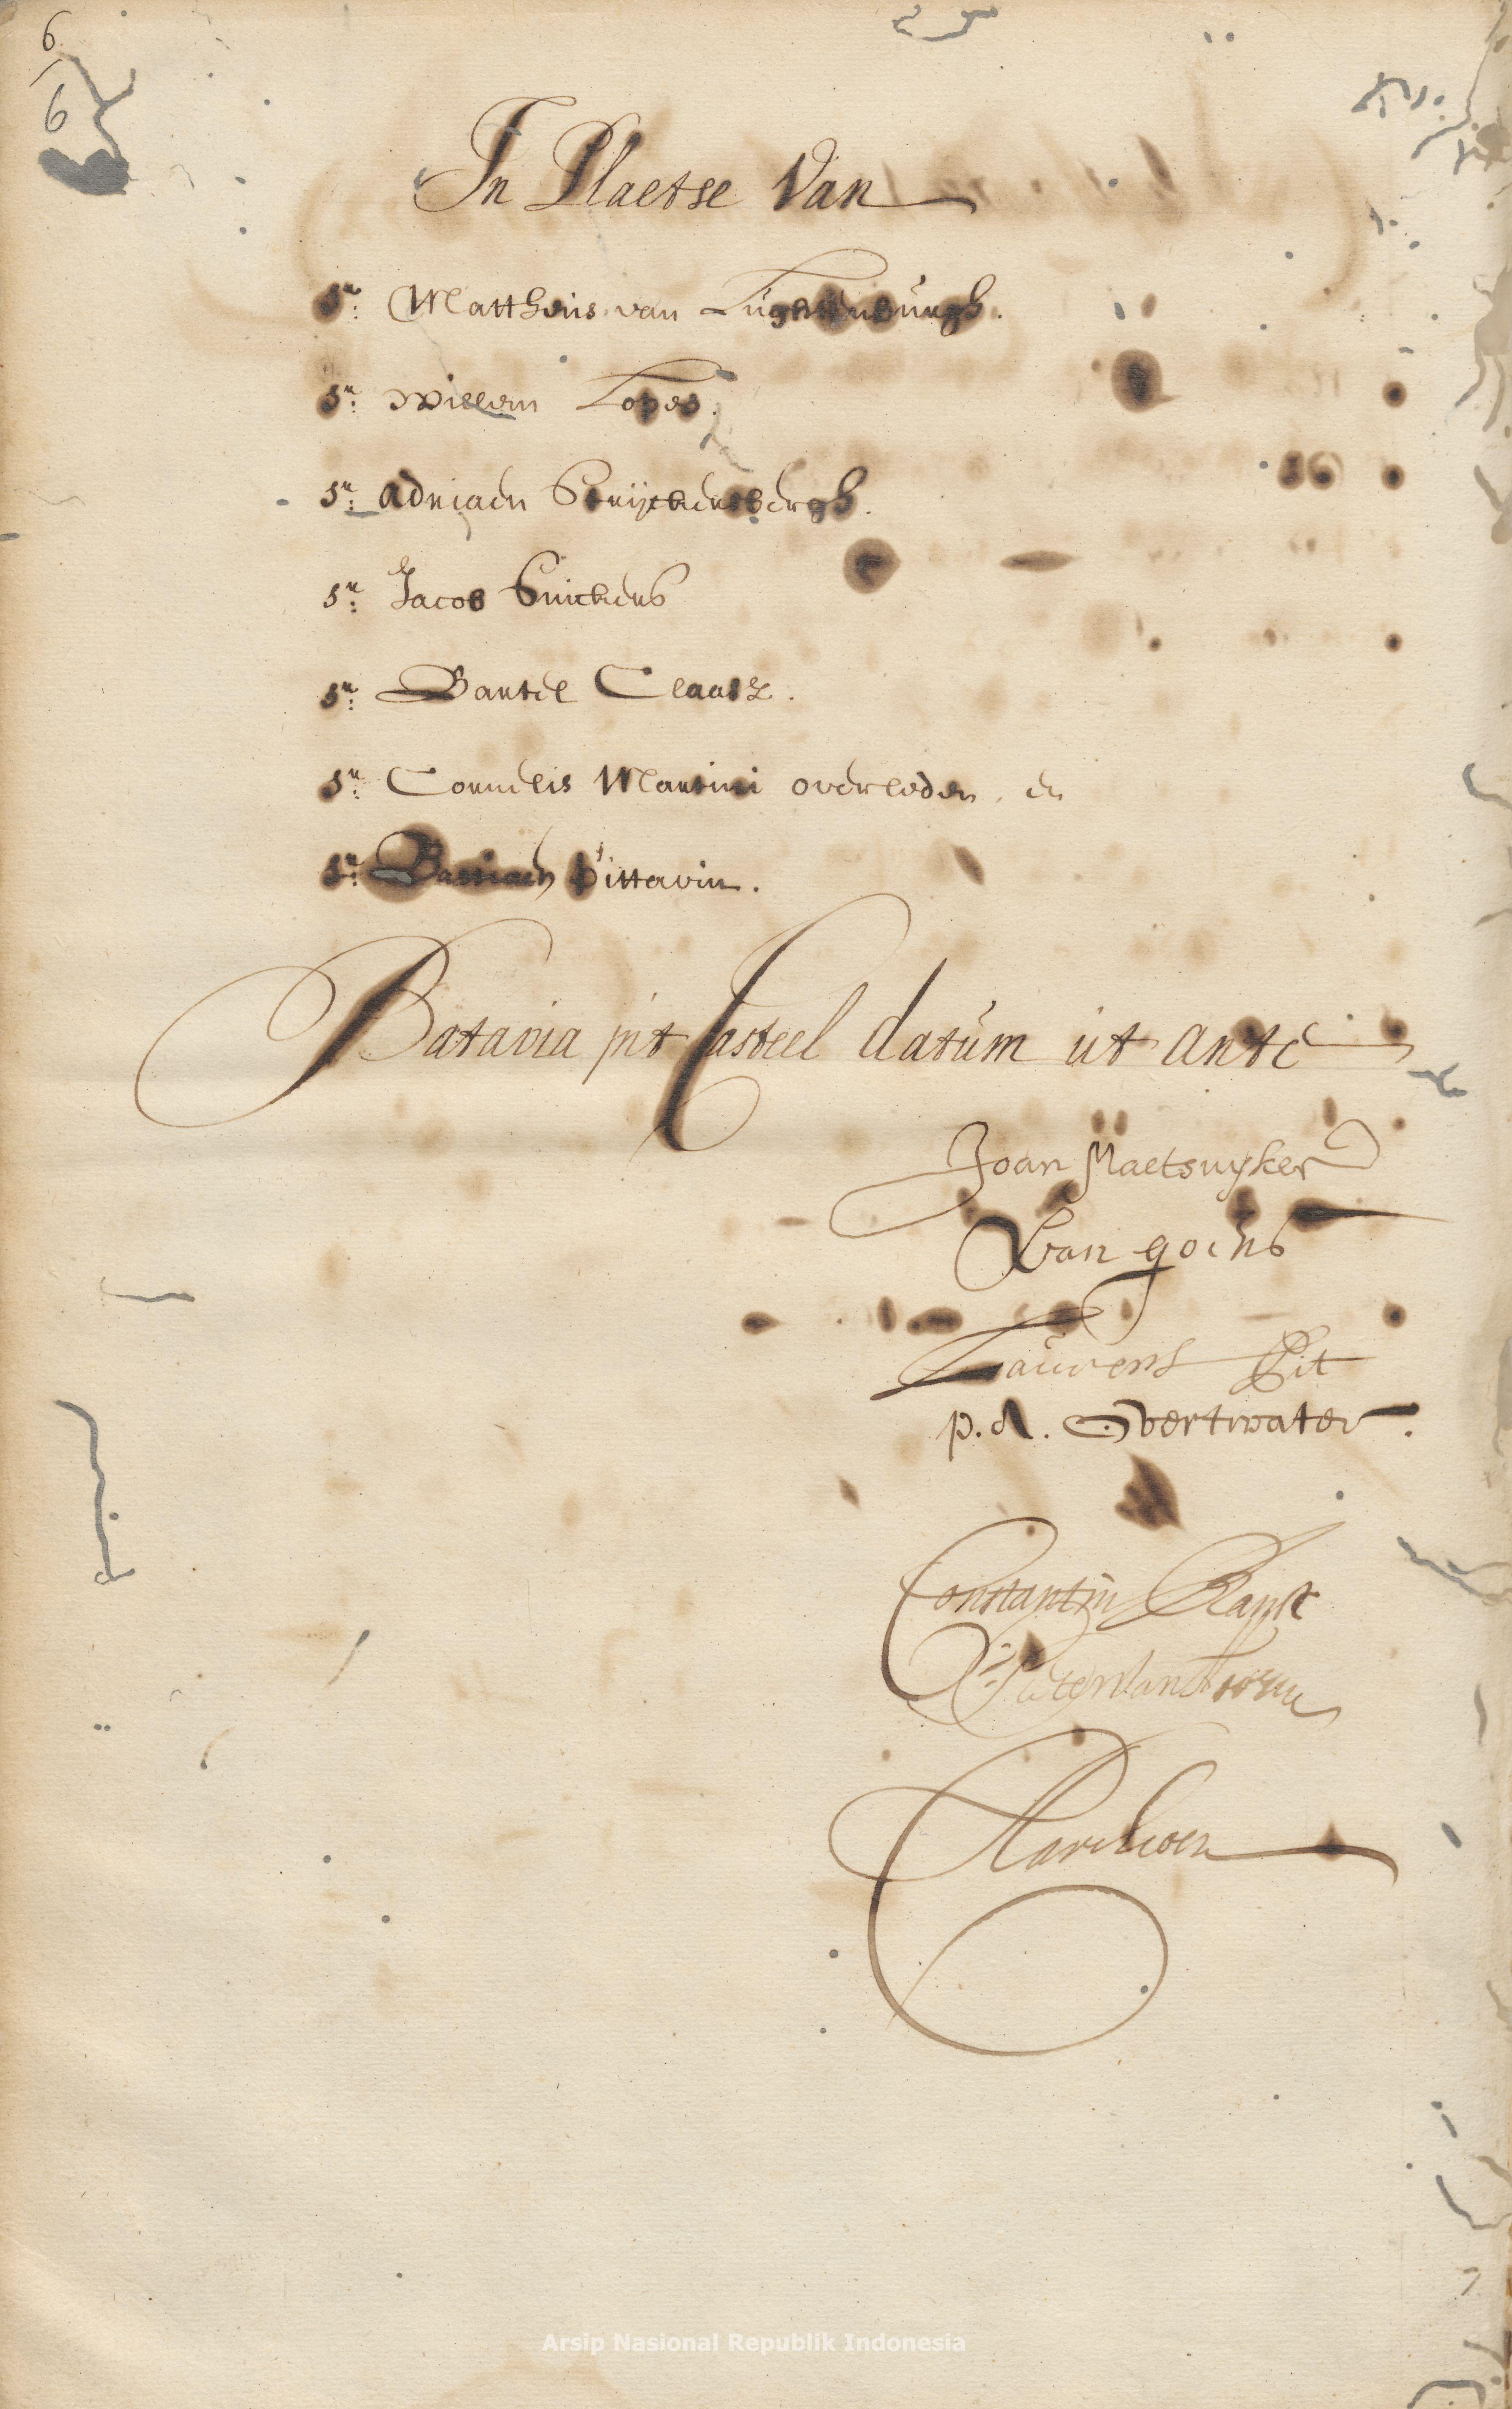 6
6
In Plaetse Van
Sr: Mattheus van Lughtenburgh.
Sr: Willem Lopes.
Sr: Adriaen Struijckersbergh.
Sr: Jacob Snickers
Sr: Bartel Claasz.
Sr: Cornelis Martini overleden, en
Sr: Bastiaen Pittavin.
Batavia int Casteel datum ut ante
Joan Maetsuyker
Van goens
Laurens Pit
p. A. Overtwater.
Constantin Ranst
Marville
Arsip Nasional Republik Indonesia